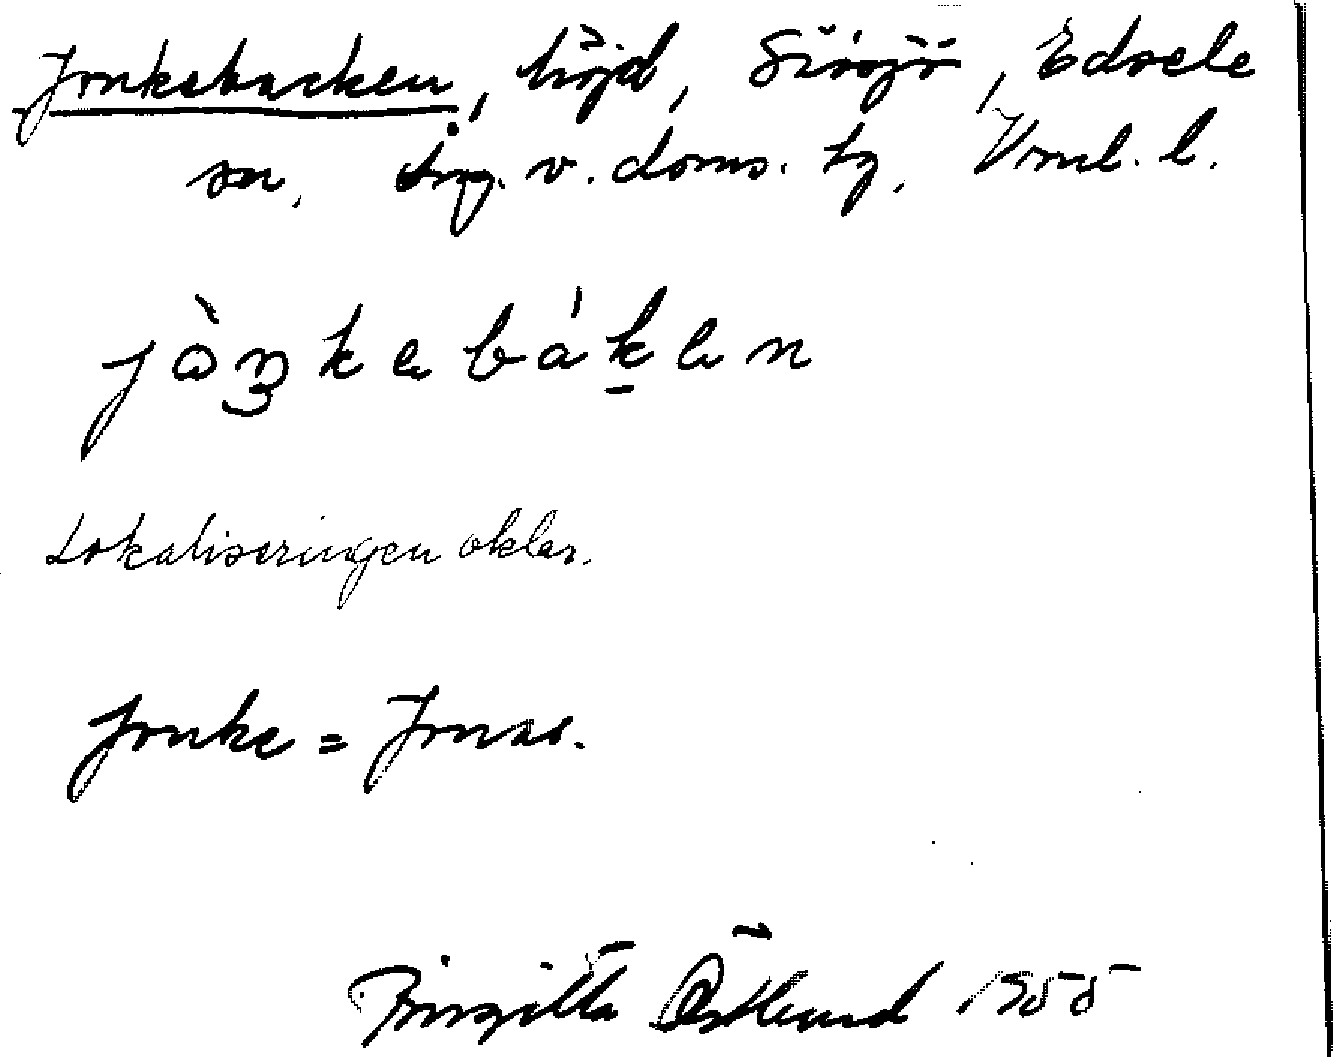 Jonkebacken, höjd, Sörsjö, Edsele
sn, Ång. v. doms. tg, Vrnl. l.
jòŋkebáken
Lokaliseringen oklar.
Jonke = Jonas.
Birgitta Östlund 1955